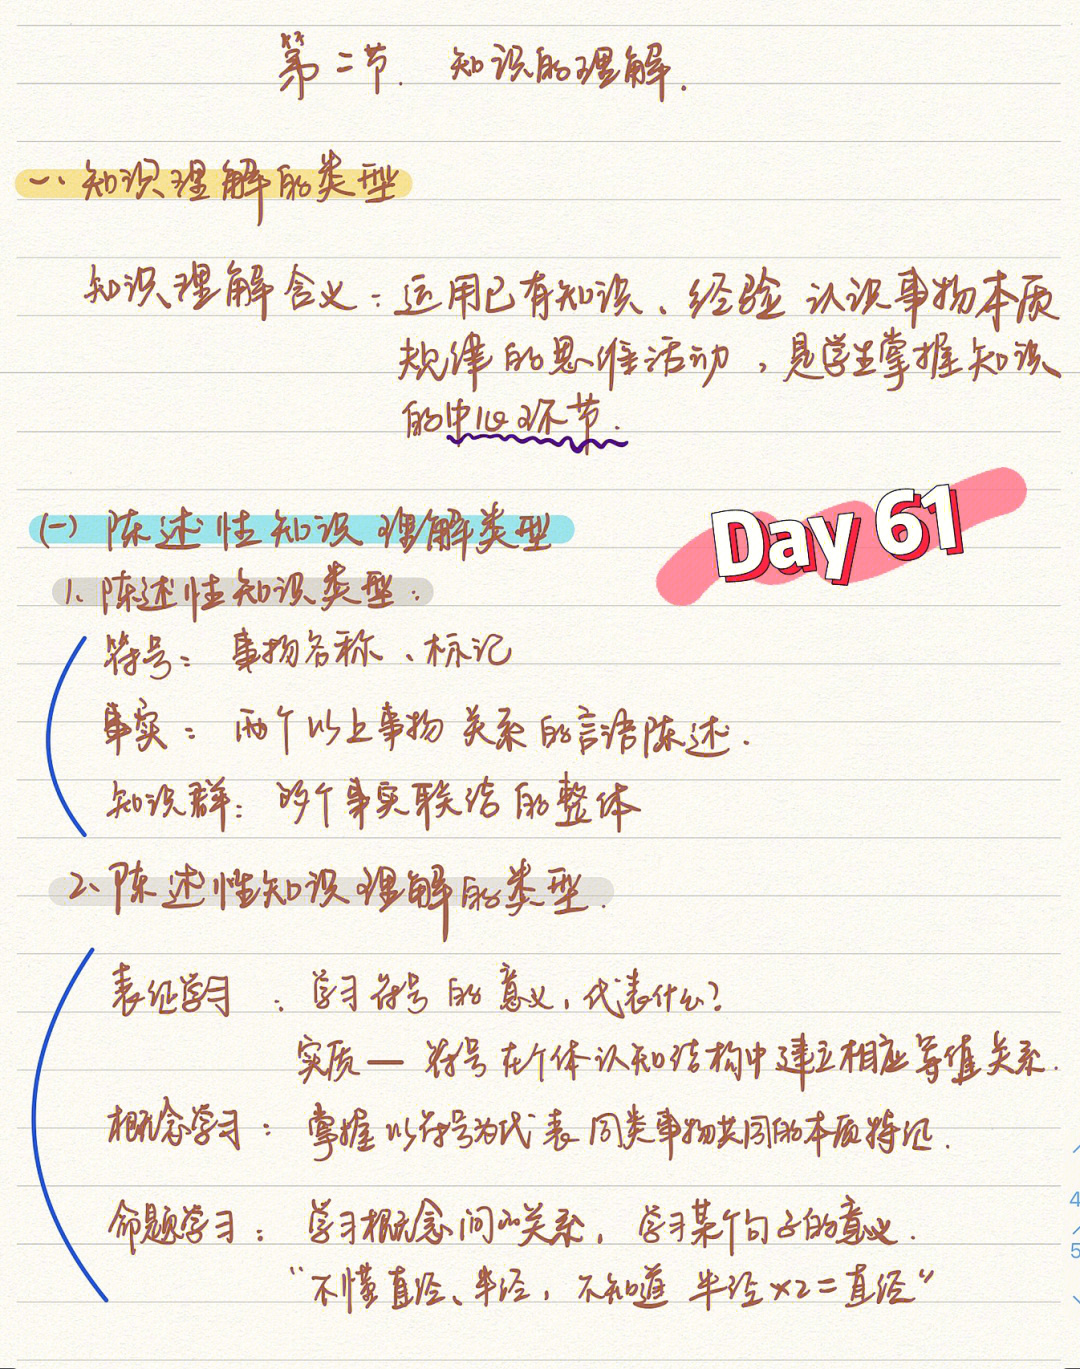 第二节. 知识的理解.
一、知识理解的类型
知识理解含义：运用已有知识、经验 认识事物本质
规律的思维活动，是学生掌握知识
的中心环节.
Day 61
(一) 陈述性知识理解类型
1、陈述性知识类型：
符号：事物名称、标记
事实：两个以上事物关系的言语陈述.
知识群：的个事实联结的整体
2、陈述性知识理解的类型.
表征学习：学习符号的意义，代表什么？
实质 — 符号在个体认知结构中建立相应等值关系.
概念学习：掌握以符号为代表同类事物共同的本质特征.
命题学习：学习概念间的关系，学习某个句子的意义.
“不懂直径、半径，不知道 半径×2=直径”
4
5